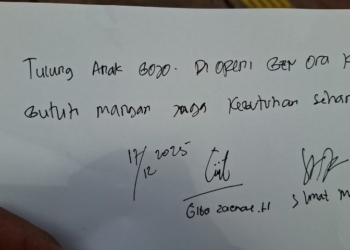 Tulung Anak Bojo. Di openi Ben Ora K
Butuh mangan Juga Kebutuhan Sehar
17/12 2025
Gibo Zaenal. H Slmat M